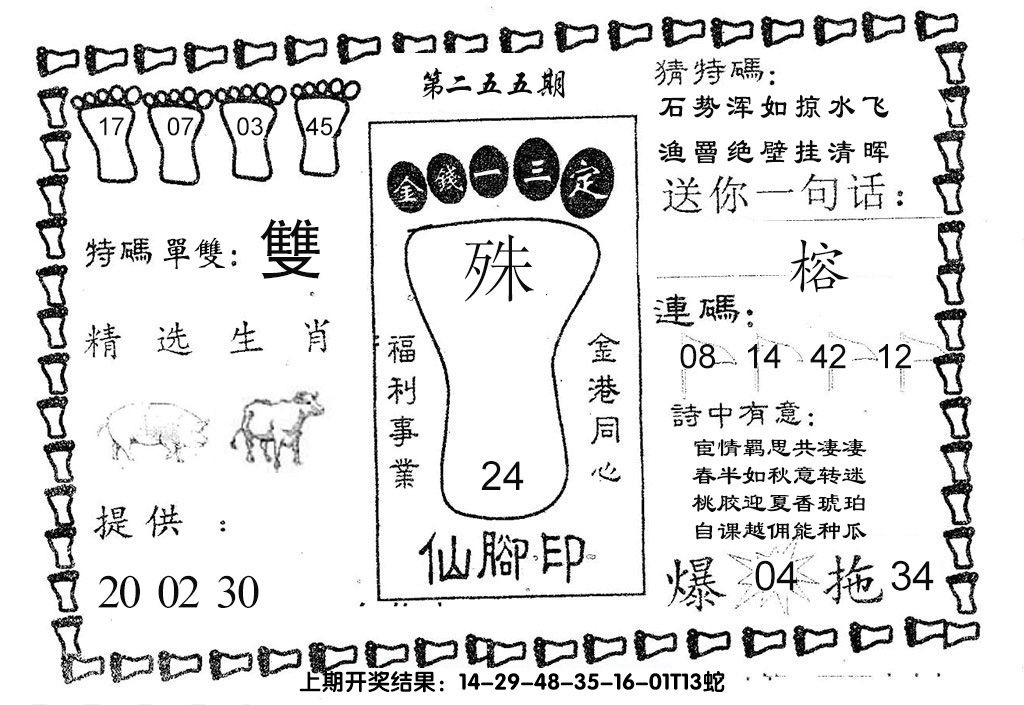 第二五五期
17 07 03 45
特碼單雙：雙
精选生肖
提供：
20 02 30
金錢一三定
殊
24
福利事業
金港同心
仙腳印
猜特碼：
石势浑如掠水飞
渔罾绝壁挂清晖
送你一句话：
榕
連碼：
08 14 42 12
詩中有意：
宦情羁思共凄凄
春半如秋意转迷
桃胶迎夏香琥珀
自课越佣能种瓜
爆 04 拖 34
上期开奖结果：14-29-48-35-16-01T13蛇